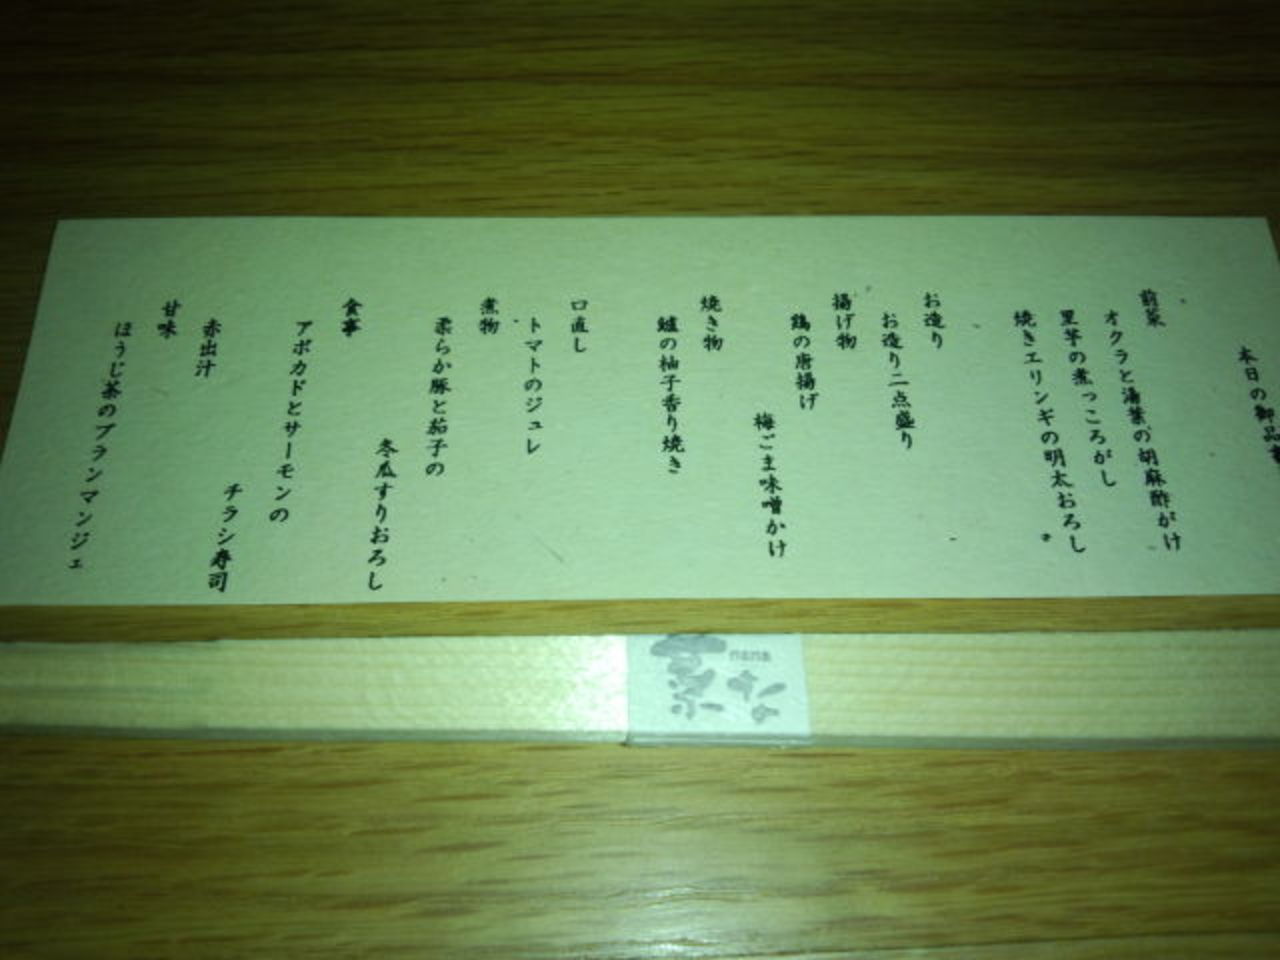 本日の御品書
前菜
オクラと湯葉の胡麻酢がけ
里芋の煮っころがし
焼きエリンギの明太おろし
お造り
お造り二点盛り
揚げ物
鶏の唐揚げ
梅ごま味噌かけ
焼き物
鱸の柚子香り焼き
口直し
トマトのジュレ
煮物
柔らか豚と茄子の
冬瓜すりおろし
食事
アボカドとサーモンの
チラシ寿司
赤出汁
甘味
ほうじ茶のブランマンジェ
nana